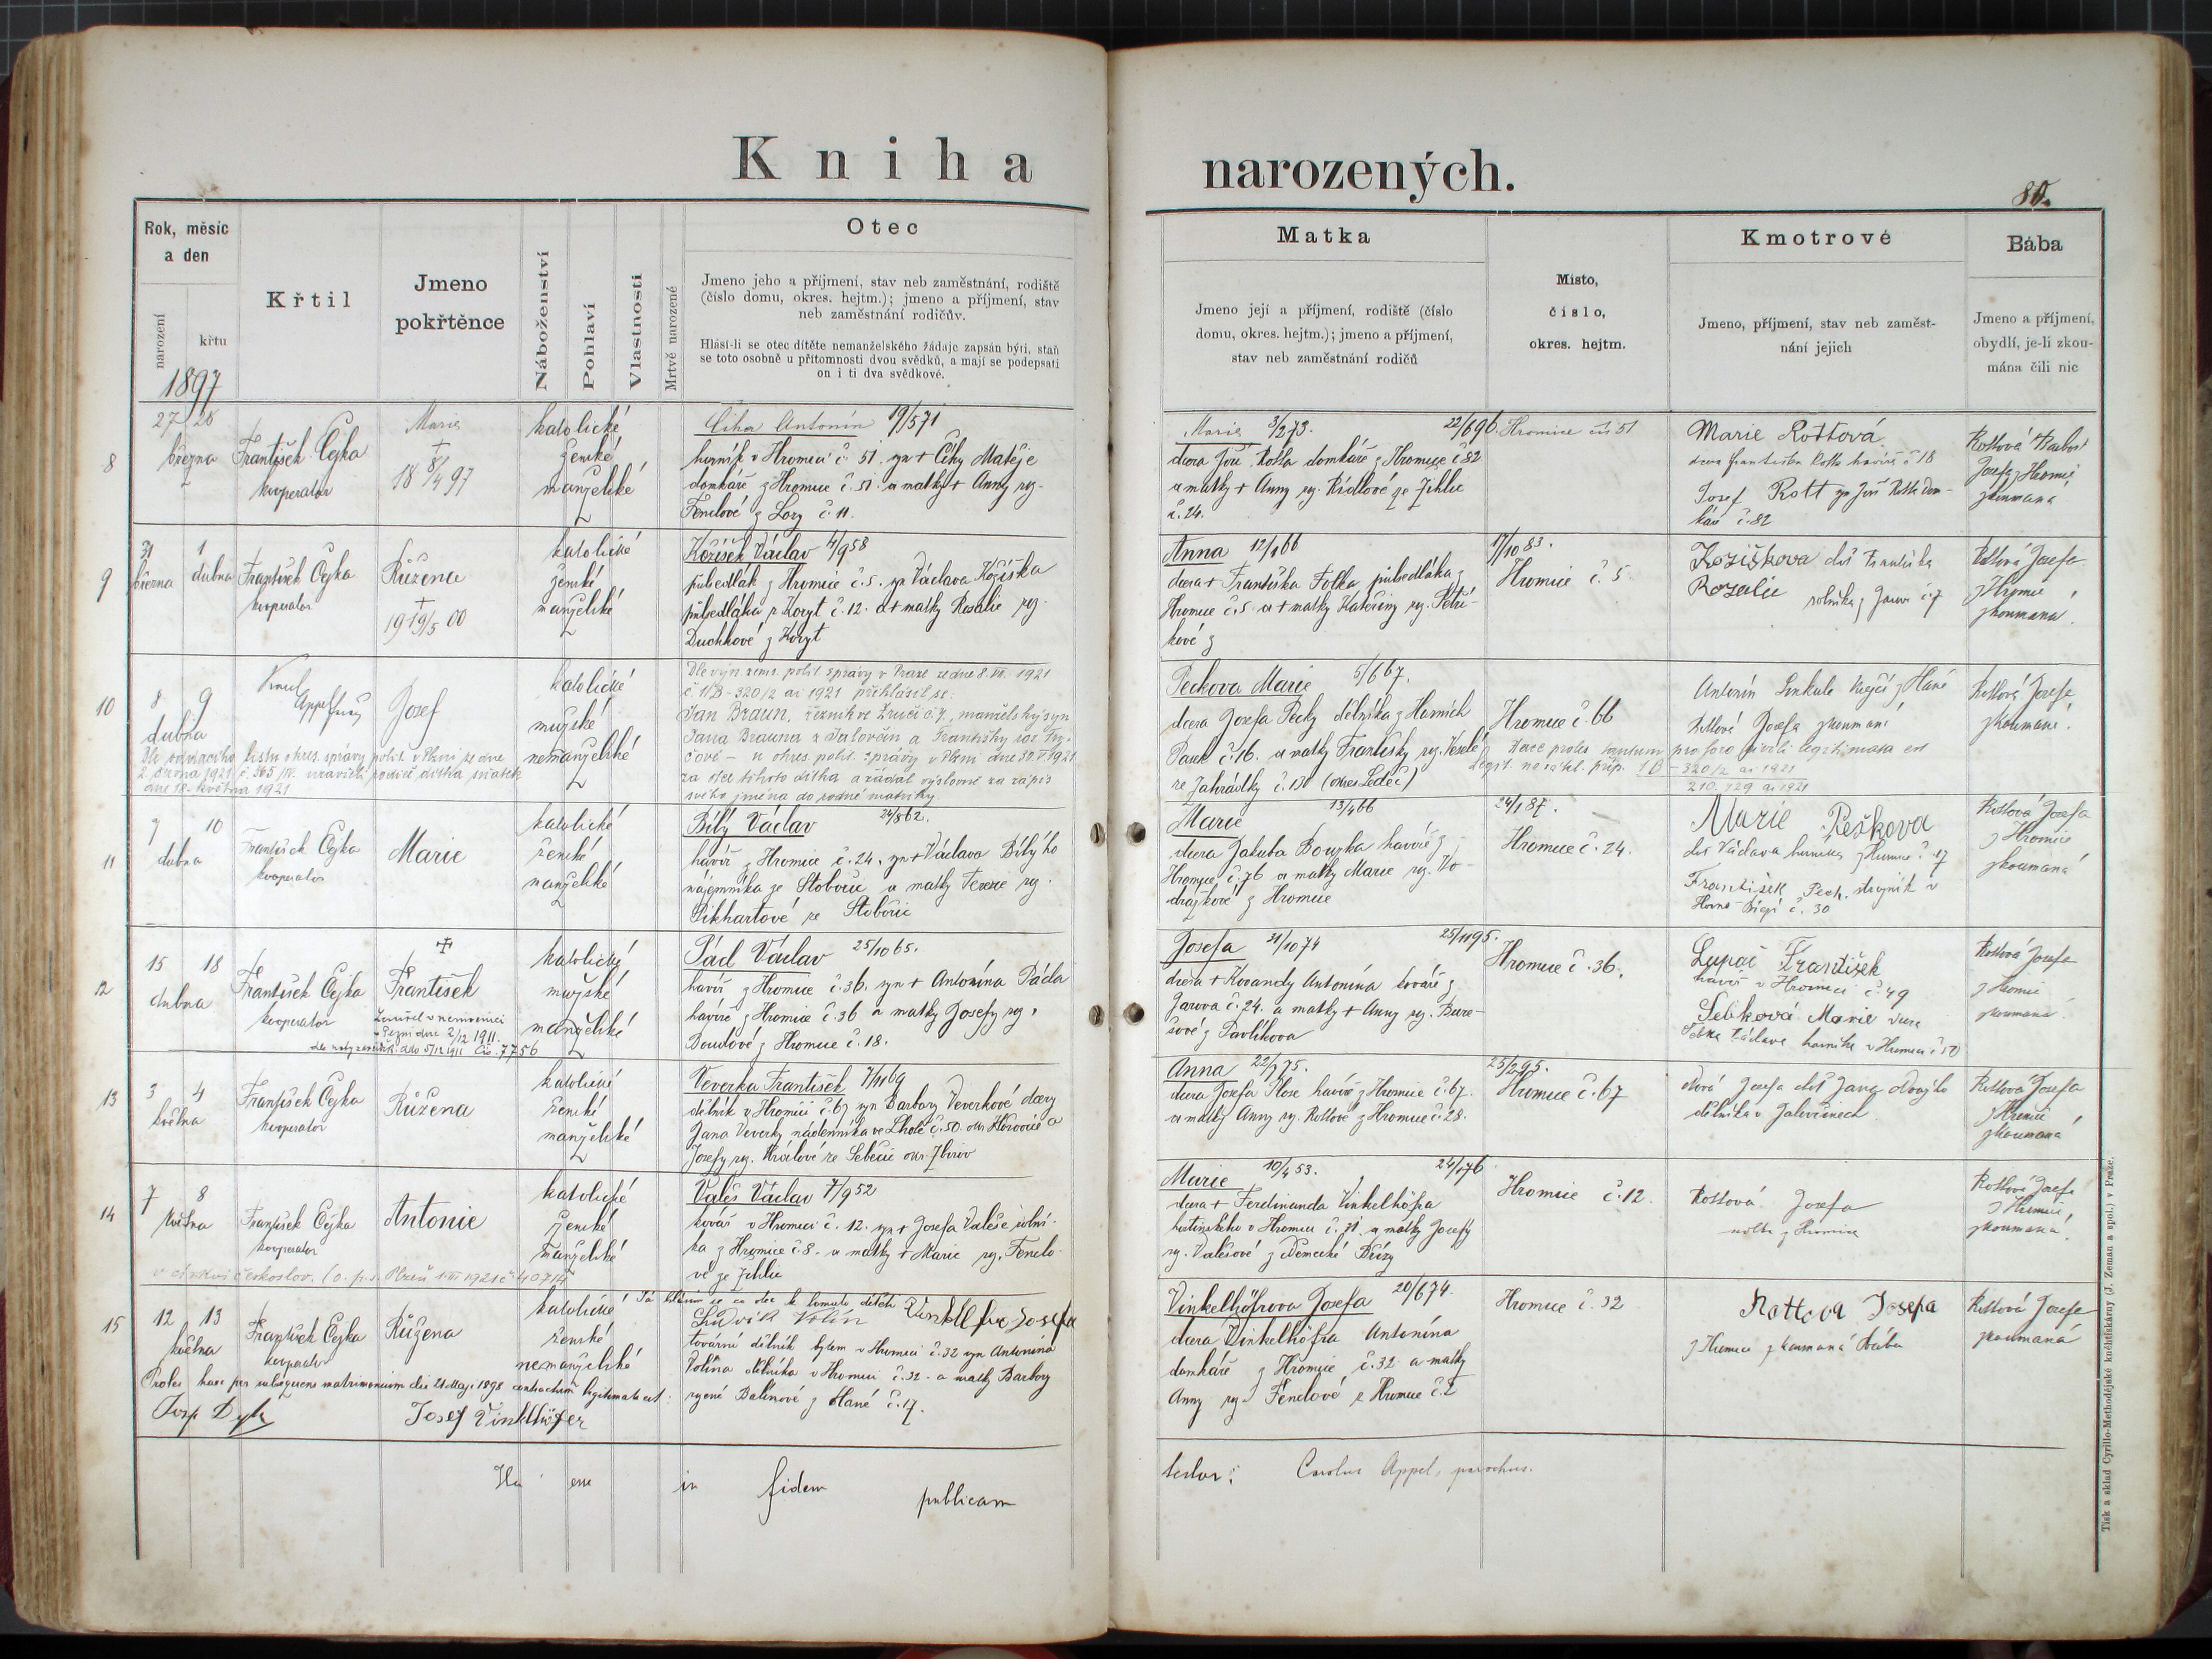 Kniha narozených.
80.
Rok, měsíc
a den
narození
křtu
1897
Křtil
Jmeno
pokřtěnce
Náboženství
Pohlaví
Vlastnosti
Mrtvě narozené
Otec
Jmeno jeho a příjmení, stav neb zaměstnání, rodiště
(číslo domu, okres. hejtm.); jmeno a příjmení, stav
neb zaměstnání rodičův.
Hlásí-li se otec dítěte nemanželského žádaje zapsán býti, staň
se toto osobně u přítomnosti dvou svědků, a mají se podepsati
on i ti dva svědkové.
Matka
Jmeno její a příjmení, rodiště (číslo
domu, okres. hejtm.); jmeno a příjmení,
stav neb zaměstnání rodičů
Místo,
číslo,
okres. hejtm.
Kmotrové
Jmeno, příjmení, stav neb zaměst-
nání jejich
Bába
Jmeno a příjmení,
obydlí, je-li zkou-
mána čili nic
8
27 28
března
František Čejka
kooperator
Marie
+
18 8/4 97
katolické
ženské
manželské
Číha Antonín 19/5 71
horník v Hromici č. 51. syn + Číhy Matěje
domkáře z Hromice č. 51. a matky + Anny roz.
Fenclové z Lory č. 11.
Marie 3/2 73.
dcera Jiří Rotta domkáře z Hromice č 82
a matky + Anny roz. Rídlové ze Jihlie
č. 24.
22/6 96. Hromice čís 51
Marie Rottová
dcera Františka Rotta havíře č 18
Josef Rott syn Jiří Rotta dom-
káře č. 82
Rottová
Josefa z Hromice
zkoumaná
9
31 1
března dubna
František Čejka
kooperator
Růžena
+
19 19/5 00
katolické
ženské
manželské
Kožíšek Václav 4/9 58
půlsedlák z Hromice č. 5. syn Václava Kožíška
půlsedláka z Koryt č. 12. a + matky Rosalie roz.
Duchkové z Koryt
Anna 12/1 66
dcera + Františka Folka půlsedláka z
Hromice č. 5 a + matky Kateřiny roz. Petří-
kové z
17/10 83.
Hromice č. 5
Kozíškova dcř Františka
Rozalie rolníka z Jarov č. 7
Rottová Josefa
z Hromice
zkoumaná.
10
8 9
dubna
Karel
Appel farář
Josef
katolické
mužské
nemanželské
Dle výn. zems. polit. správy v Praze ze dne 8. VI. 1921
č. 1B-320/2 ai 1921 přihlásil se:
Jan Braun, řezník ve Zruči č. 7, manželský syn
Jana Brauna z Žalovčin a Františky roz.
čové – u okres. polit. správy v Plzni dne 30. V 1921
za otce tohoto dítka a žádal výslovně za zápis
svého jména do rodné matriky.
listu okres. správy polit. v Plzni ze dne
2. června 1921 č. 565/IV. uzavřeli rodiče dítka sňatek
dne 18. května 1921
Peckova Marie 5/6 67.
dcera Josefa Pecky dělníka z Horních
Pasek č. 16. a matky Františky roz. Veselé
ze Zahrádky č. 130 (okres Ledeč)
Hromice č. 66
Haec proles tantum pro foro civili legitimata est
1B-320/2 ai 1921
210.129 ai 1921
Antonín Sinkule krejčí z Hané
Rottová Josefa zkoumaná
Rottová Josefa
zkoumaná.
11
9 10
dubna
František Čejka
kooperator
Marie
katolické
ženské
manželské
Bílý Václav 24/8 62.
havíř z Hromice č. 24. syn + Václava Bílýho
nájemníka ze Stobořic a matky Terezie roz.
Pikhartové ze Stobořic
Marie 13/4 66
dcera Jakuba Bouzka havíře z
Hromice č. 76 a matky Marie roz. Vo-
drážkové z Hromice
24/1 87.
Hromice č. 24.
Marie Peškova
dcř Václava horníka z Hromice č. 17
František Pech, strojník v
Horní Bříze č. 30
Rottová Josefa
z Hromice
zkoumaná
12
15 18
dubna
František Čejka
kooperator
+
František
Zemřel v nemocnici
v Plzni dne 2/12 1911.
ddo 5/12 1911 Čís. 7756
katolické
mužské
manželské
Pácl Václav 25/10 65.
havíř z Hromice č. 36. syn + Antonína Pácla
havíře z Hromice č. 36 a matky Josefy roz.
Doudové z Hromice č. 18.
Josefa 31/10 74
dcera + Kovandy Antonína kováře z
Jarova č. 24. a matky + Anny roz. Bure-
šové z Pavlíkova.
25/11 95.
Hromice č. 36.
Lupač František
havíř v Hromici č. 49
Sebková Marie dcera
Sebka Václava horníka v Hromici č 50
Rottová Josefa
z Hromice
zkoumaná.
13
3 4
května
František Čejka
kooperator
Růžena
katolické
ženské
manželské
Veverka František 7/11 69
dělník v Hromici č. 67 syn Barbory Veverkové dcery
Jana Veverky nádenníka ve Lhotě č. 50. okr. Hořovice a
Josefy roz. Králové ze Sebečic okr. Zbirov
Anna 22/1 75.
dcera Josefa Plose havíře z Hromice č. 67.
a matky Anny roz. Rottové z Hromice č. 28.
25/2 95.
Hromice č. 67
Josefa dcř Jana
dělníka v Žalovčinech
Rottová Josefa
z Hromice
zkoumaná
14
7 8
května
František Čejka
kooperator
Antonie
katolické
ženské
manželské
v církvi českoslov. (o. p. s. Plzeň 1. III 1921 č. 40714
Valeš Václav 7/9 52
kovář v Hromici č. 12. syn + Josefa Valeše rolní-
ka z Hromice č. 8. a matky + Marie roz. Fenclo-
vé ze Jihlie
Marie 10/4 53.
dcera + Ferdinanda Vinkelhöfra
hostinského v Hromici č. 71. a matky Josefy
roz. Valešové z Německé Břízy
24/1 76
Hromice č. 12.
Rottová Josefa
z Hromice
Rottová Josefa
z Hromice,
zkoumaná.
15
12 13
května
František Čejka
kooperator
Růžena
katolické
ženské
nemanželské
Proles haec per subsequens matrimonium die 21 Maji 1898 contractum legitimata est.
Josef Vinklhöfer
Já hlásím se co otec k tomuto dítěti
Ludvík Volín
tovární dělník bytem v Hromici č. 32 syn Antonína
Volína dělníka v Hromici č. 32. a matky Barbory
rozené Balínové z Hané č. 17.
Vinkelhöfrova Josefa 20/6 74.
dcera Vinkelhöfra Antonína
domkáře z Hromice č. 32 a matky
Anny roz. Fenclové z Hromice č. 2
Hromice č. 32
Rottova Josefa
z Hromice zkoumaná bába
Rottová Josefa
zkoumaná
esse in fidem publicam testor: Carolus Appel, parochus.
Tisk a sklad Cyrillo-Methodějské knihtiskárny (J. Zeman a spol.) v Praze.